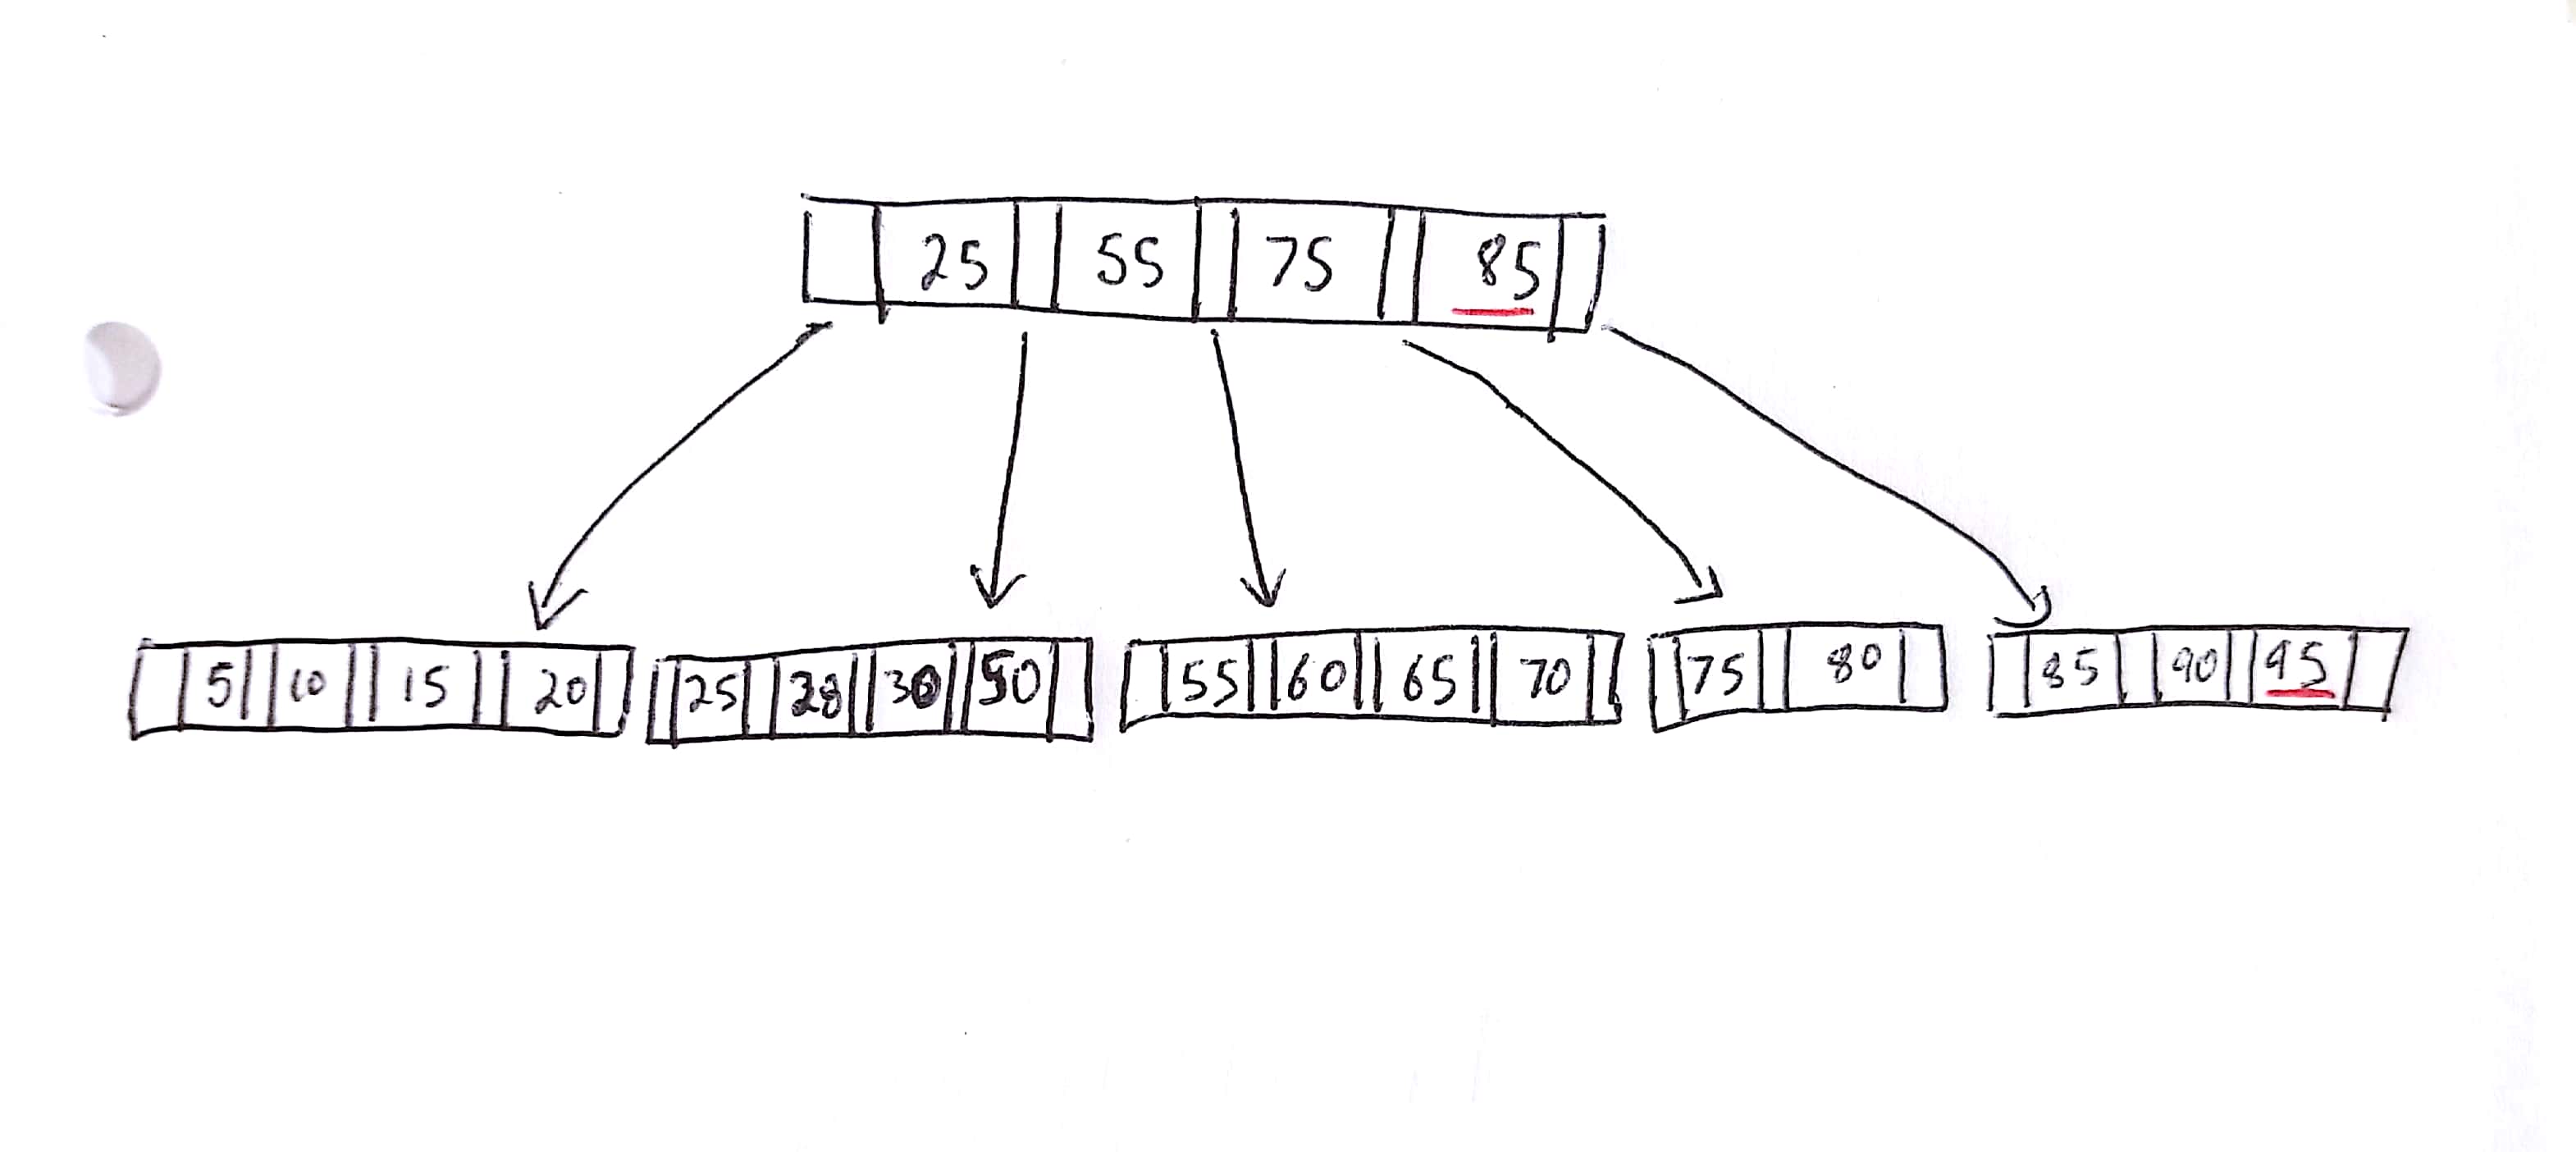 25 55 75 85
5 10 15 20 25 28 30 50 55 60 65 70 75 80 85 90 95